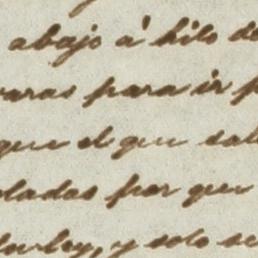 abajo á hilo de
varas para ir p
que el que sal
oladas por que
y solo se